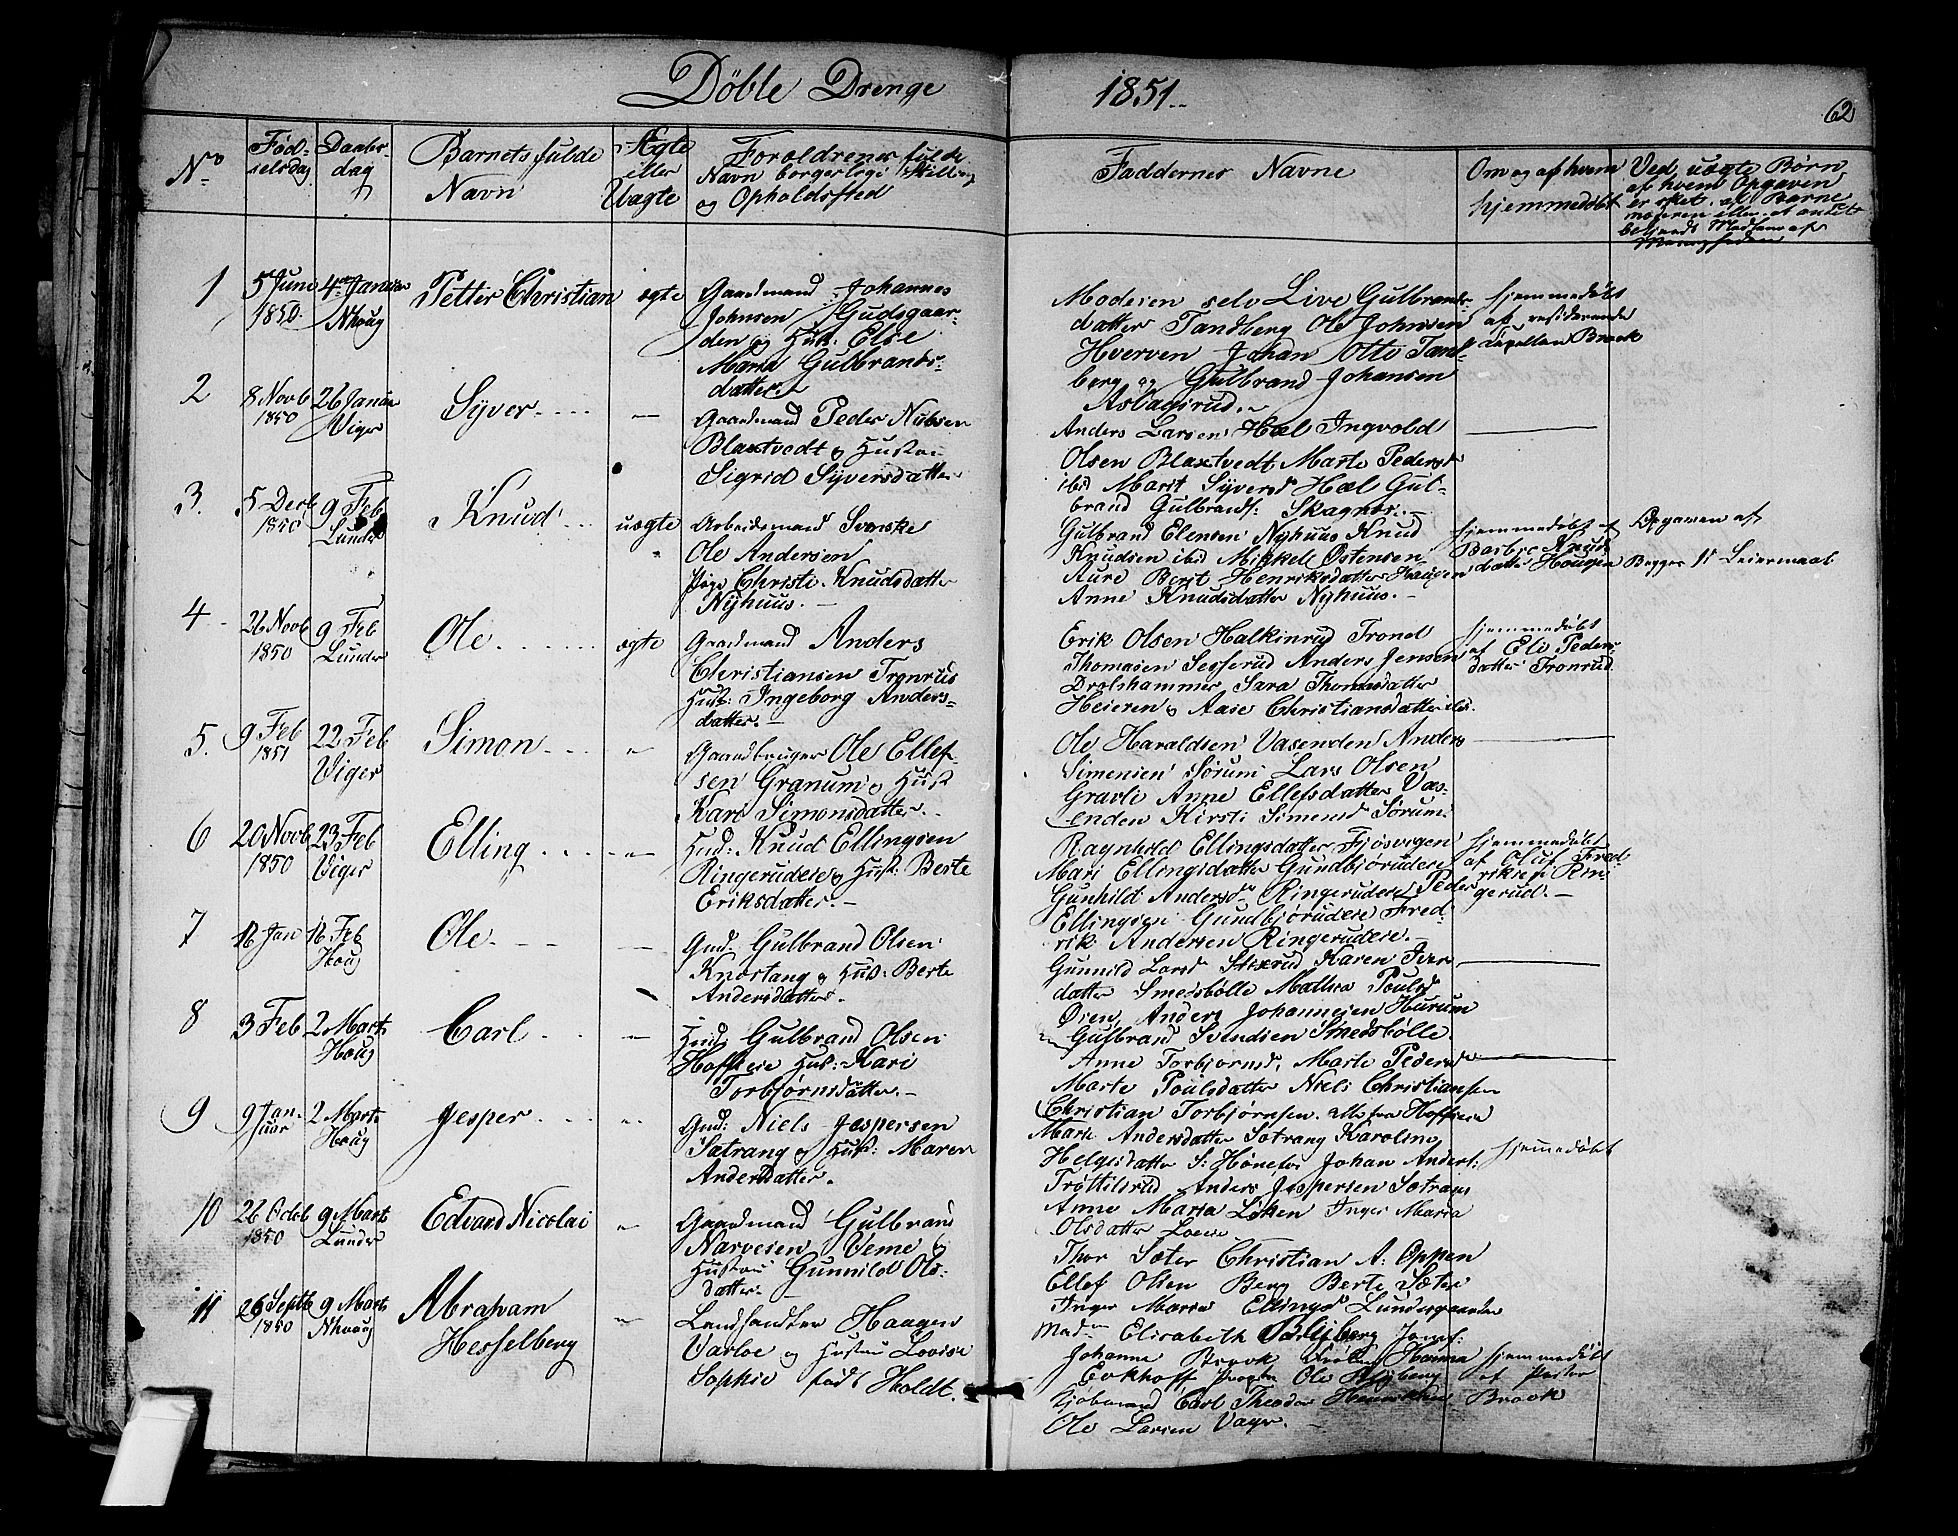 Döble Drenge 1851.
62
No
Fød-
selsdag
Daabs-
dag
Barnets fulde
Navn
Ægte
eller
Uægte
Forældrenes fulde
Navn borgerlige Stilling
og Opholdssted
Faddernes Navne
Om og af hvem
hjemmedøbt
Ved uægte Børn
af hvem Opgaven
er sket, af Barne
moderen eller et andet
Medlem af
Menigheden
1
5 Juni
1850.
4 Januar
Nhoug
Petter Christian
ægte
Gaardmand Johannes
Johnsen Gudsgaar-
den og Hus: Else
Maria Gulbrands-
datter.
Moderen selv Live Gulbrands-
datter Tandberg Ole Johnsen
Hverven Johan Otto Tand-
berg og Gulbrand Johansen
Aslagsrud.
hjemmedøbt
af residerende
Capellan Brock
2
8 Novb
1850
26 Janua
Viger
Syver
—
Gaardmand Peder Nubsen
Blaxtvedt og Hustru
Sigrid Syversdatter
Anders Larsen Hæl Ingvold
Olsen Blaxtvedt Marte Pedersd
ibid Marit Syversd Hæl Gul-
brand Gulbrands: Skagnæs.
3.
5 Decb
1850
9 Feb
Lunder
Knud
uægte
Arbeidsmand Svenske
Ole Andersen
Pige Christi Knudsdatter
Nyhuus.
Gulbrand Elensen Nyhuus Knud
Knudsen ibid Mickel Østensen
Aure Berit Henriksdatter Haugen
Anne Knudsdatter Nyhuus.
hjemmedøbt af
Barbro Knuds
datter Hougen
Opgaven af
Begges 1ste Leiermaal
4
26 Novb
1850
9 Feb
Lunder
Ole
ægte
Gaardmand Anders
Christiansen Tronrud
Hust: Ingeborg Anders-
datter.
Erik Olsen Halkinrud Trond
Thomasen Sesserud Anders Jensen
Drolshammer Sara Thomasdatter
Heieren og Aase Christiansdatter ibd.
hjemmedøbt
af Eli Peders
datter Tronrud.
5.
9 Feb
1851
22 Feb
Viger
Simon
"
Gaardbruger Ole Ellef-
sen Granum og Hust
Kari Simonsdatter.
Ole Haraldsen Vasenden Anders
Simensen Sørum Lars Olsen
Gravli Anne Ellefsdatter Vas-
enden Kirsti Simensd Sørum
6
20 Novb
1850
23 Feb
Viger
Elling
"
Hud: Knud Ellingsen
Ringerudeie og Hus: Berte
Eriksdatter.
Ragnhild Ellingsdatter Fjøsvigen
Mari Ellingsdatter Gundbjørudeie
Gunhild Andersd Ringerudeie Peder
Ellingsen Gundbjørudeie Fred-
rik Andersen Ringerudeie.
hjemmedøbt
af Oluf Fred-
riksen Rin-
gerud.
7
16 Jan
16 Feb
Houg
Ole
Gmd: Gulbrand Olsen
Knæstang og Hus: Berte
Andersdatter.
Gunnild Larsd Stixrud Karen Iver
datter Smedsbølle Mathea Poulsd
Øien Anders Johannesen Hurum
Gulbrand Svendsen Smedsbølle
8
3 Feb
2 Marts
Houg
Carl
—
Hud: Gulbrand Olsen
Hoffseie Hus: Kari
Torbjørnsdatter.
Anne Torbjørnsd, Marte Pedersd
Marte Poulsdatter Niels Christiansen
Christian Torbjørnsen alle fra Hoffseie
9
9 Jan-
uar
2 Marts
Houg
Jesper
"
Gmd: Niels Jespersen
Sætrang og Hust: Maren
Andersdatter.
Marie Andersdatter Sætrang Karoline
Helgesdatter S: Hønefos Johan Anders:
Trøttilsrud Anders Jespersen Sætrang
Anne Maria Løken Inger Maria
Olsdatter
hjemmedøbt
10
26 Octob
1850
9 Marts
Lunder
Edvard Nicolai
"
Gaardmand Gulbrand
Narvesen Veme og
Hustru Gunnild Ols-
datter.
Thor Sæter Christian A: Oppen
Ellef Olsen Berg Berte Sæter
Inger Maria Ellingsd Lundesgaarden
11
26 Septb
1850
9 Marts
Nhoug
Abraham
Hesselberg
"
Landhandler Haagen
Varloe og Hustru Lovise
Sophie født Holdt.
Madm Elisabeth Blyberg Jomf:
Johanne Brock Frøken Hanna
Eckhoff Ole Blyberg
Kjøbmand Carl Theodor Henriksen
Ole Larsen Vager.
hjemmedøbt
af Pastor
Brock